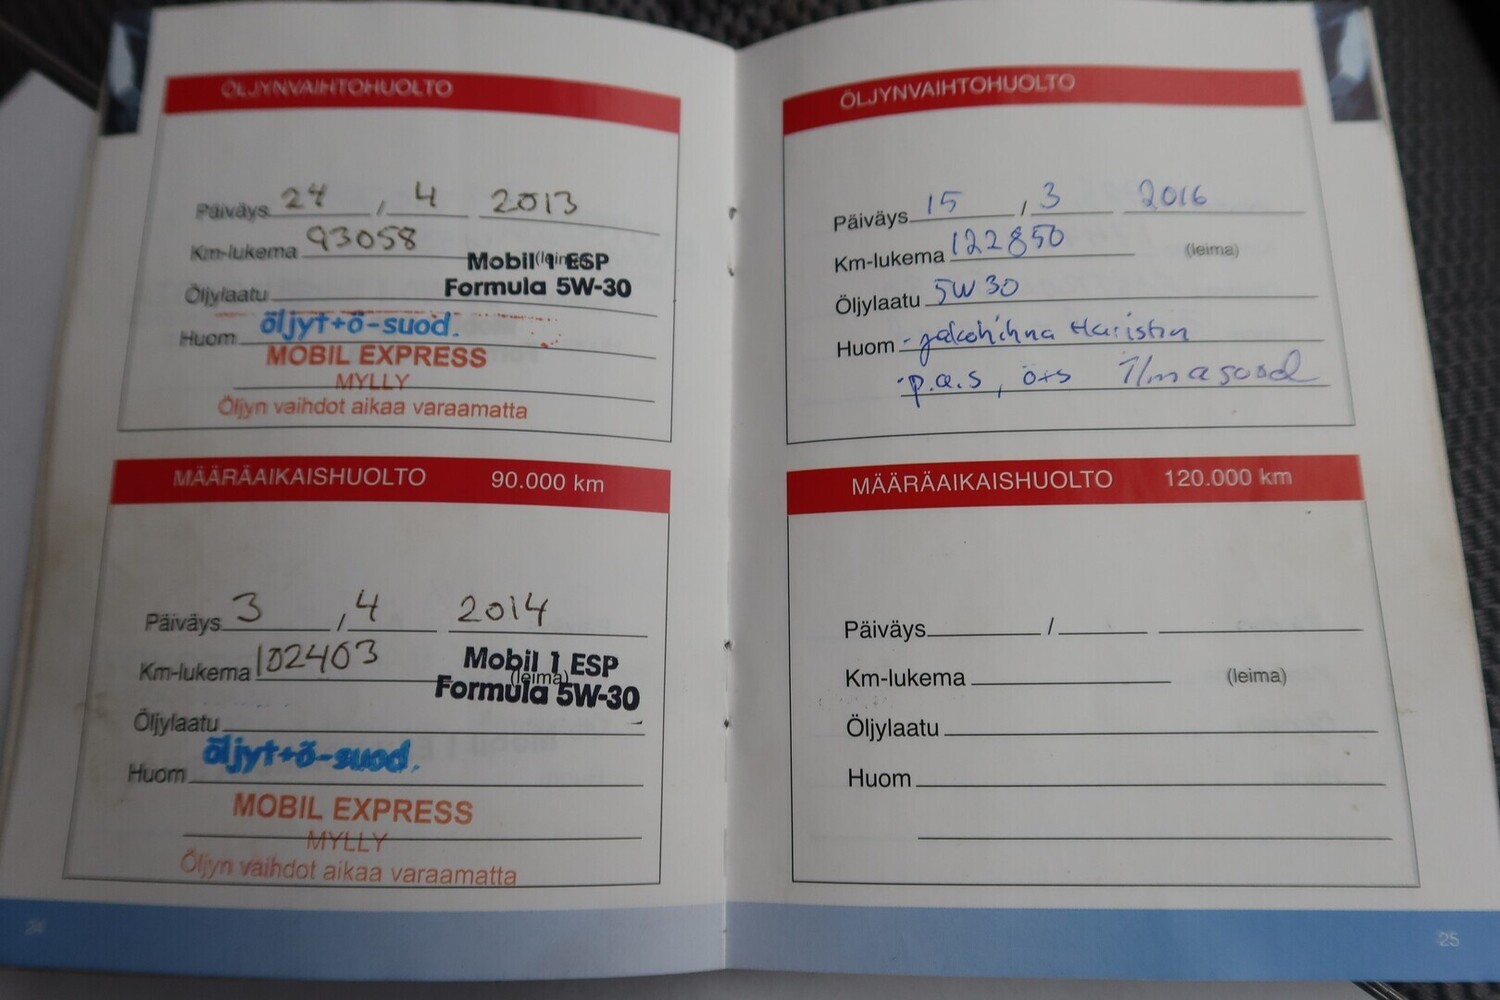 ÖLJYNVAIHTOHUOLTO
Päiväys 24 / 4 2013
Km-lukema 93058
(leima)
Mobil 1 ESP
Formula 5W-30
Öljylaatu
Huom öljyt+ö-suod.
MOBIL EXPRESS
MYLLY
Öljyn vaihdot aikaa varaamatta
MÄÄRÄAIKAISHUOLTO 90.000 km
Päiväys 3 / 4 2014
Km-lukema 102403
Mobil 1 ESP
(leima)
Formula 5W-30
Öljylaatu
Huom öljyt+ö-suod.
MOBIL EXPRESS
MYLLY
Öljyn vaihdot aikaa varaamatta
24
ÖLJYNVAIHTOHUOLTO
Päiväys 15 / 3 2016
Km-lukema 122850 (leima)
Öljylaatu 5W30
Huom - jakohihna
- p.a.s, ö+s Ilmasuod
MÄÄRÄAIKAISHUOLTO 120.000 km
Päiväys /
Km-lukema (leima)
Öljylaatu
Huom
25